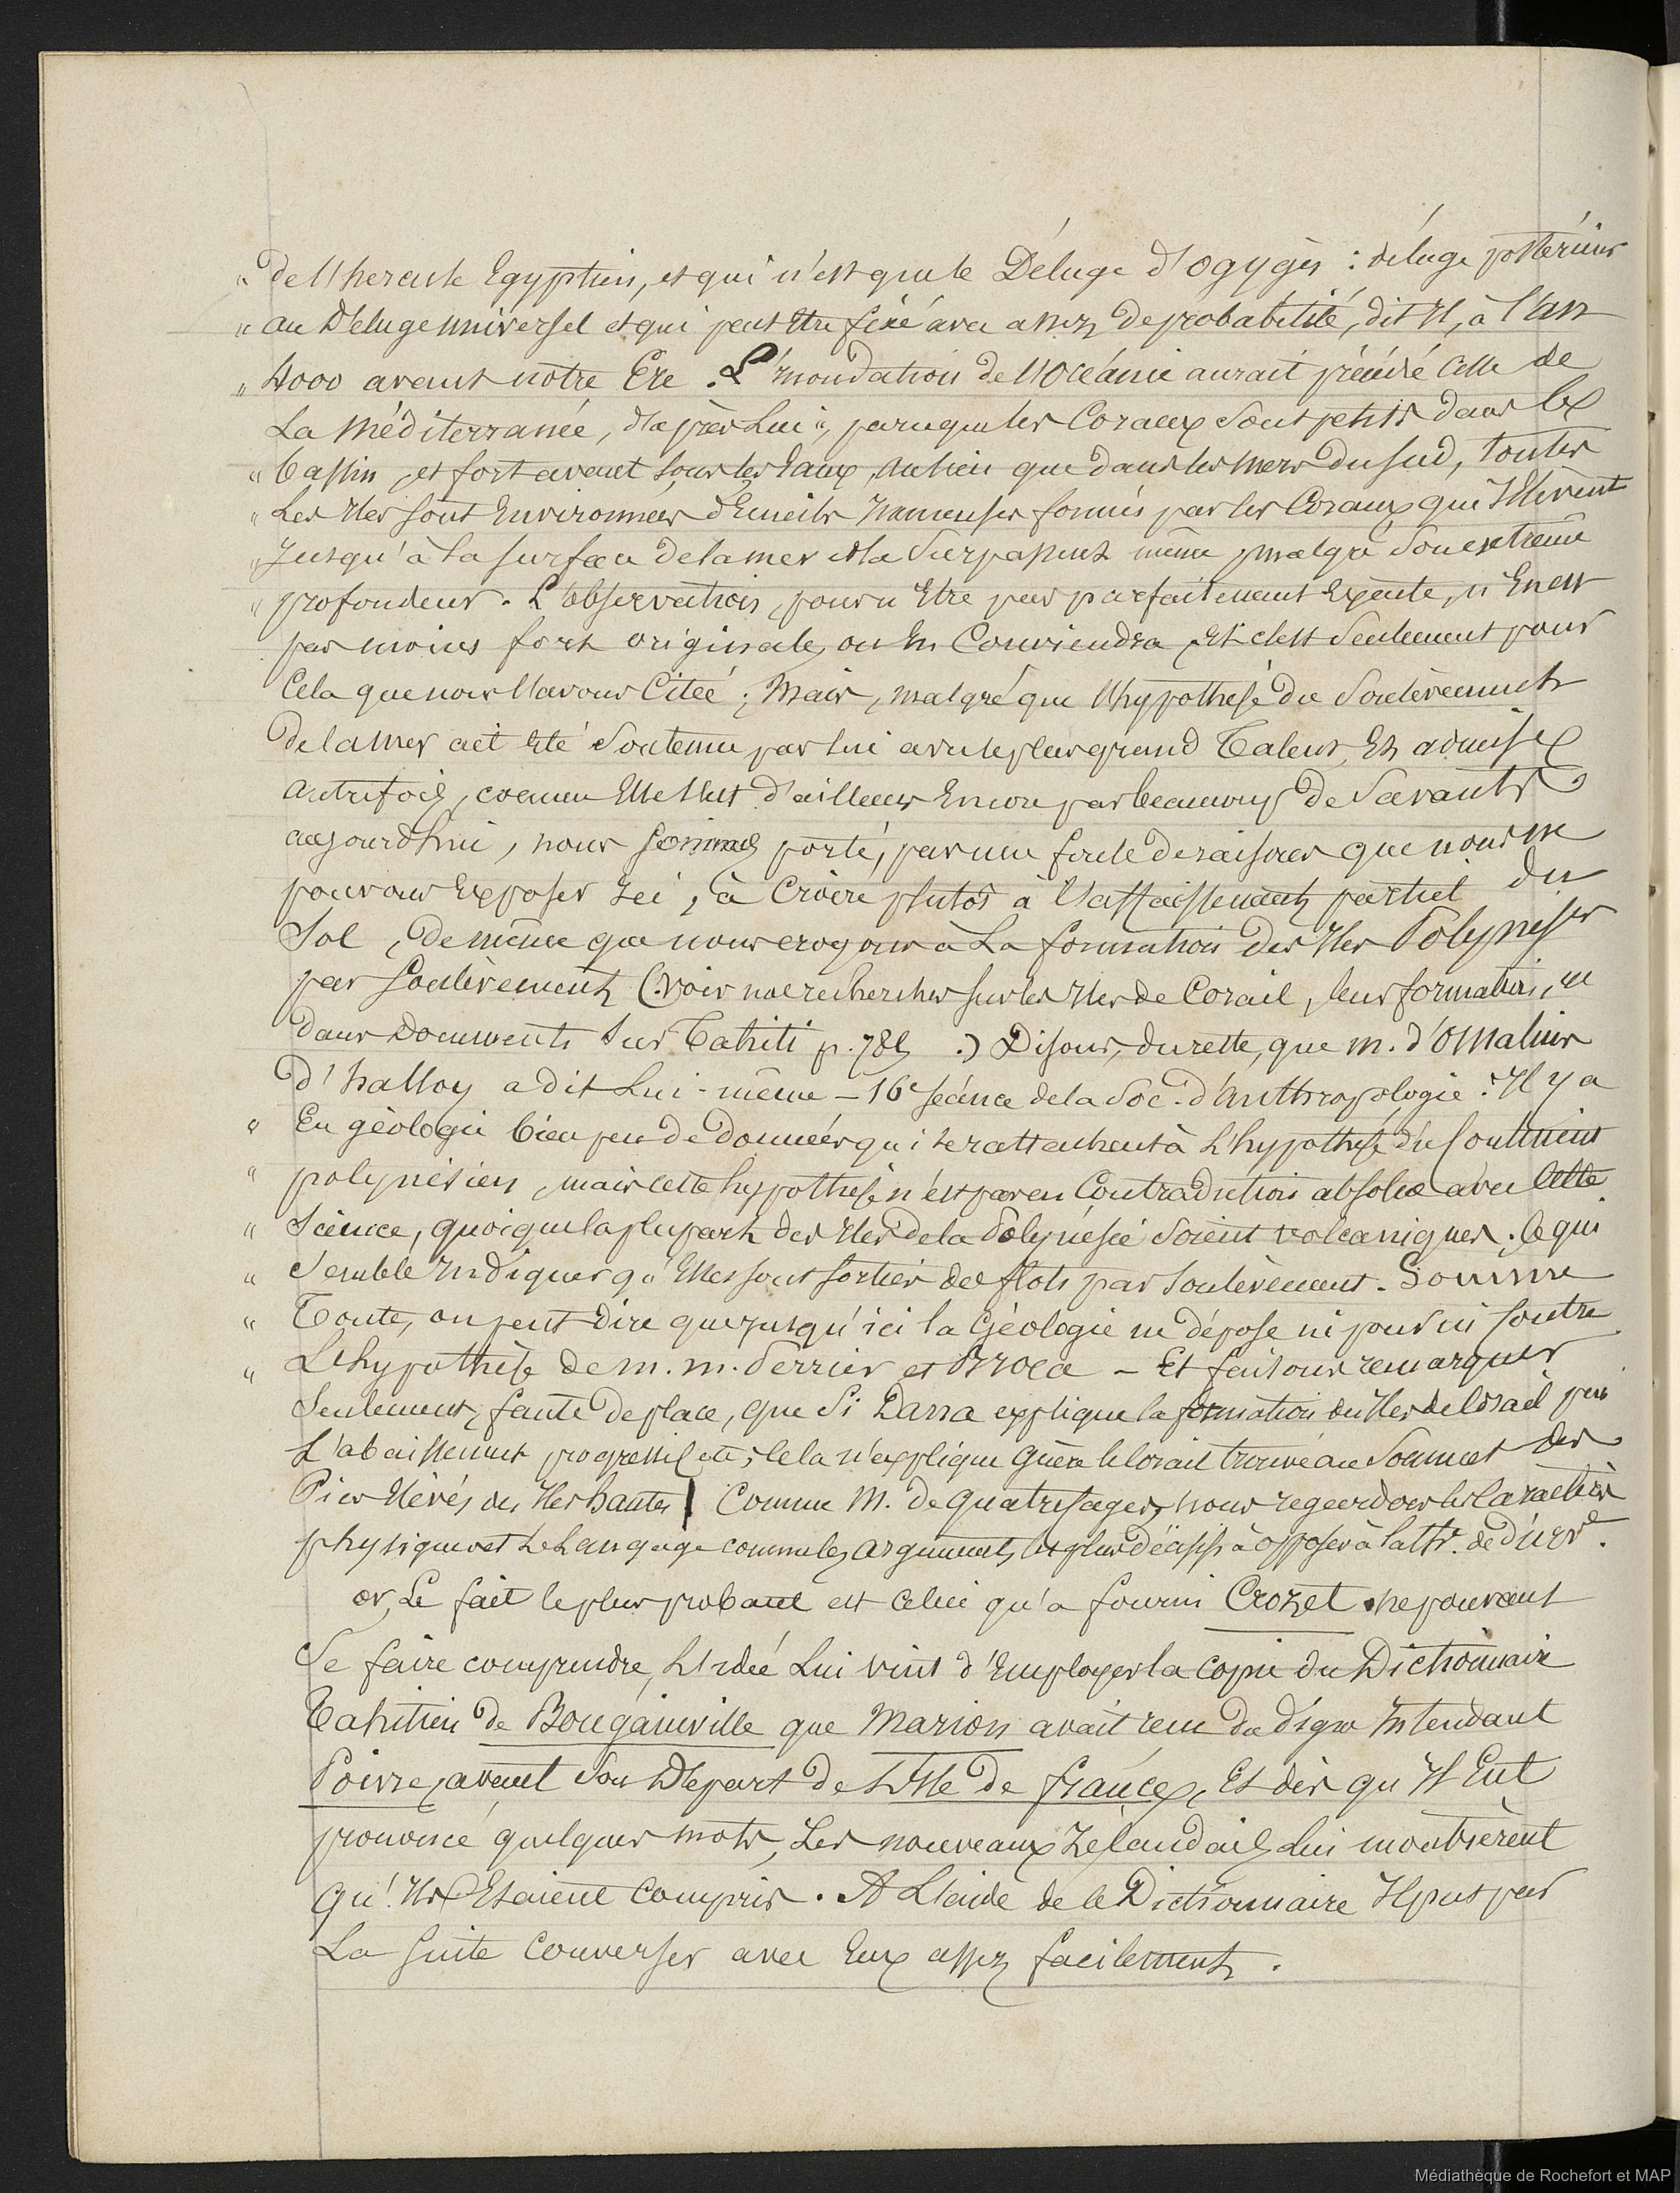 " de l'hercule Egyptien, et qui n'est que le Déluge d'Ogygès : déluge postérieur
" au Déluge universel et qui peut être fixé avec assez de probabilité, dit Il, à l'an
" 4000 avant notre Ere. L'Inondation de l'Océanie aurait précédé celle de
La Méditerranée, d'après Lui ", parceque les Coraux sont petits dans les
" bassin, et fort avant sous les Eaux, au lieu que dans les mers du sud, toutes
" Les Iles sont Environnées d'Ecueils Immenses formés par les Coraux qui s'Elèvent
" Jusqu'à la surface de la mer et la surpassent même, malgré son extrême
" profondeur. L'observation, pour n'Etre pas parfaitement Exacte, n'En est
pas moins fort originale, on En Conviendra, Et c'est seulement pour
Cela que nous l'avons Citée ; Mais, malgré que l'hypothèse du Soulèvement
De la Mer ait Eté Soutenue par lui avec le plus grand Talent, Et admise
autrefois, comme Elle l'est d'ailleurs Encore par beaucoup de Savants
aujourdhui, nous sommes porté, par une foule de raisons que nous ne
pouvons Exposer Ici, à Croire plutôt à l'affaissement partiel du
Sol, de même que nous croyons à La formation des Iles Polynésies
par Soulèvement (Voir nos recherches sur les Iles de Corail, leur formation, &
dans Documents sur Tahiti p. 782 .) Disons, du reste, que m. d'Omalius
D'halloy a dit Lui-même – 16e séance de la Soc. d'Anthropologie : Il y a
" En géologie bien peu de Données qui se rattachent à L'hypothèse du Continent
" polynésien, mais cette hypothèse n'est pas en Contradiction absolue avec Cette
" Science, quoique la plupart des Iles de la Polynésie soient volcaniques. Ce qui
" Semble Indiquer qu'Elles sont sorties des flots par soulèvement. Somme
" Toute, on peut dire que jusqu'ici la Géologie ne dépose ni pour ni contre
" L'hypothèse de m. m. Perrier et Broca – Et faisons remarquer
Seulement, faute de place, que Si Dana explique la formation des Iles de Corail par
L'abaissement progressif etc, Cela n'explique Guère le Corail trouvé au Sommet des
Pics Elévés des Iles hautes | Comme M. de Quatrefages, nous regardons les Caractères
physiques et Le Langage comme les arguments les plus décisifs à opposer à l'attr. de d'urve.
or, Le fait le plus probant est Celui qu'a fourni Crozet. ne pouvant
Se faire comprendre, L'Idée Lui vint d'Employer la Copie du Dictionnaire
Tahitien de Bougainville que Marion avait reçu du digne Intendant
Poivre, avant son Départ de L'Ile de france, Et dès qu'Il Eut
prononcé quelques mots, Les nouveaux Zelandais Lui montrèrent
qu'Ils Etaient Compris. A L'aide de ce Dictionnaire Il put par
La Suite Converser avec Eux assez facilement.
Médiathèque de Rochefort et MAP